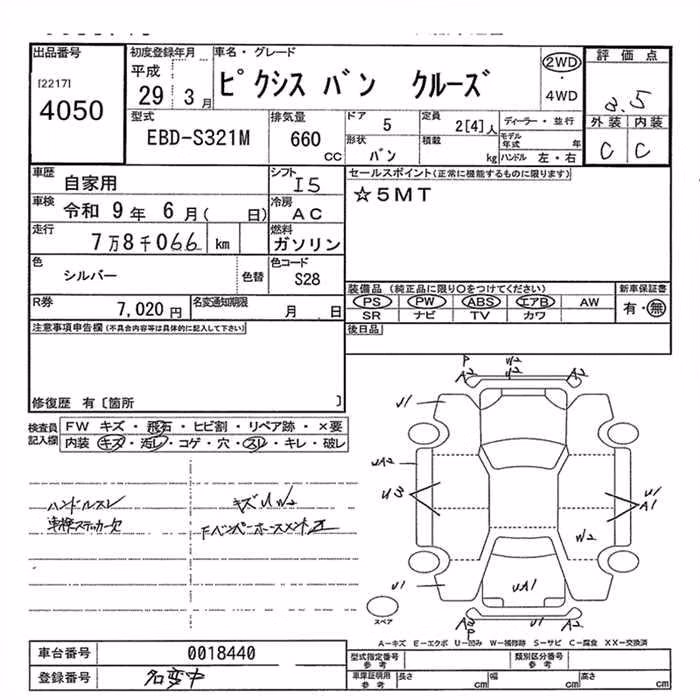 出品番号
[2217]
4050
初度登録年月
平成
29 3月
車名・グレード
ピクシス バン クルーズ
2WD
・
4WD
評価点
3.5
外装 内装
C C
型式
EBD-S321M
排気量
660
CC
ドア
5
定員
2[4]人
ディーラー・並行
形状
バン
積載
kg
モデル年式 年
ハンドル 左・右
車歴
自家用
シフト
I5
車検
令和 9年 6月( 日)
冷房
AC
走行
7万8千066 km
燃料
ガソリン
色
シルバー
色替
色コード
S28
R券
7,020円
名変通知期限
月 日
セールスポイント(正常に機能するものに限ります)
☆5MT
装備品 (純正品に限り〇をつけてください)
新車保証書
PS PW ABS エアB AW
SR ナビ TV カワ
有・無
後日品
注意事項申告欄(不具合内容等は具体的に記入して下さい)
修復歴 有〔箇所 〕
検査員
記入欄
FW キズ・飛石・ヒビ割・リペア跡・×要
内装 キズ・汚レ・コゲ・穴・スレ・キレ・破レ
ハンドルスレ
車検ステッカー欠
キズUW2
P W2
A2 W2 A2
U1
UA2
U3
U1
A1
W2
U1
UA1
A2 A2
P
スペア
A-キズ E-エクボ U-凹み W-補修跡 S-サビ C-腐食 XX-交換済
車台番号
0018440
登録番号
名変中
型式指定番号
参考
類別区分番号
参考
車庫証明用
参考
長さ cm
幅 cm
高さ cm